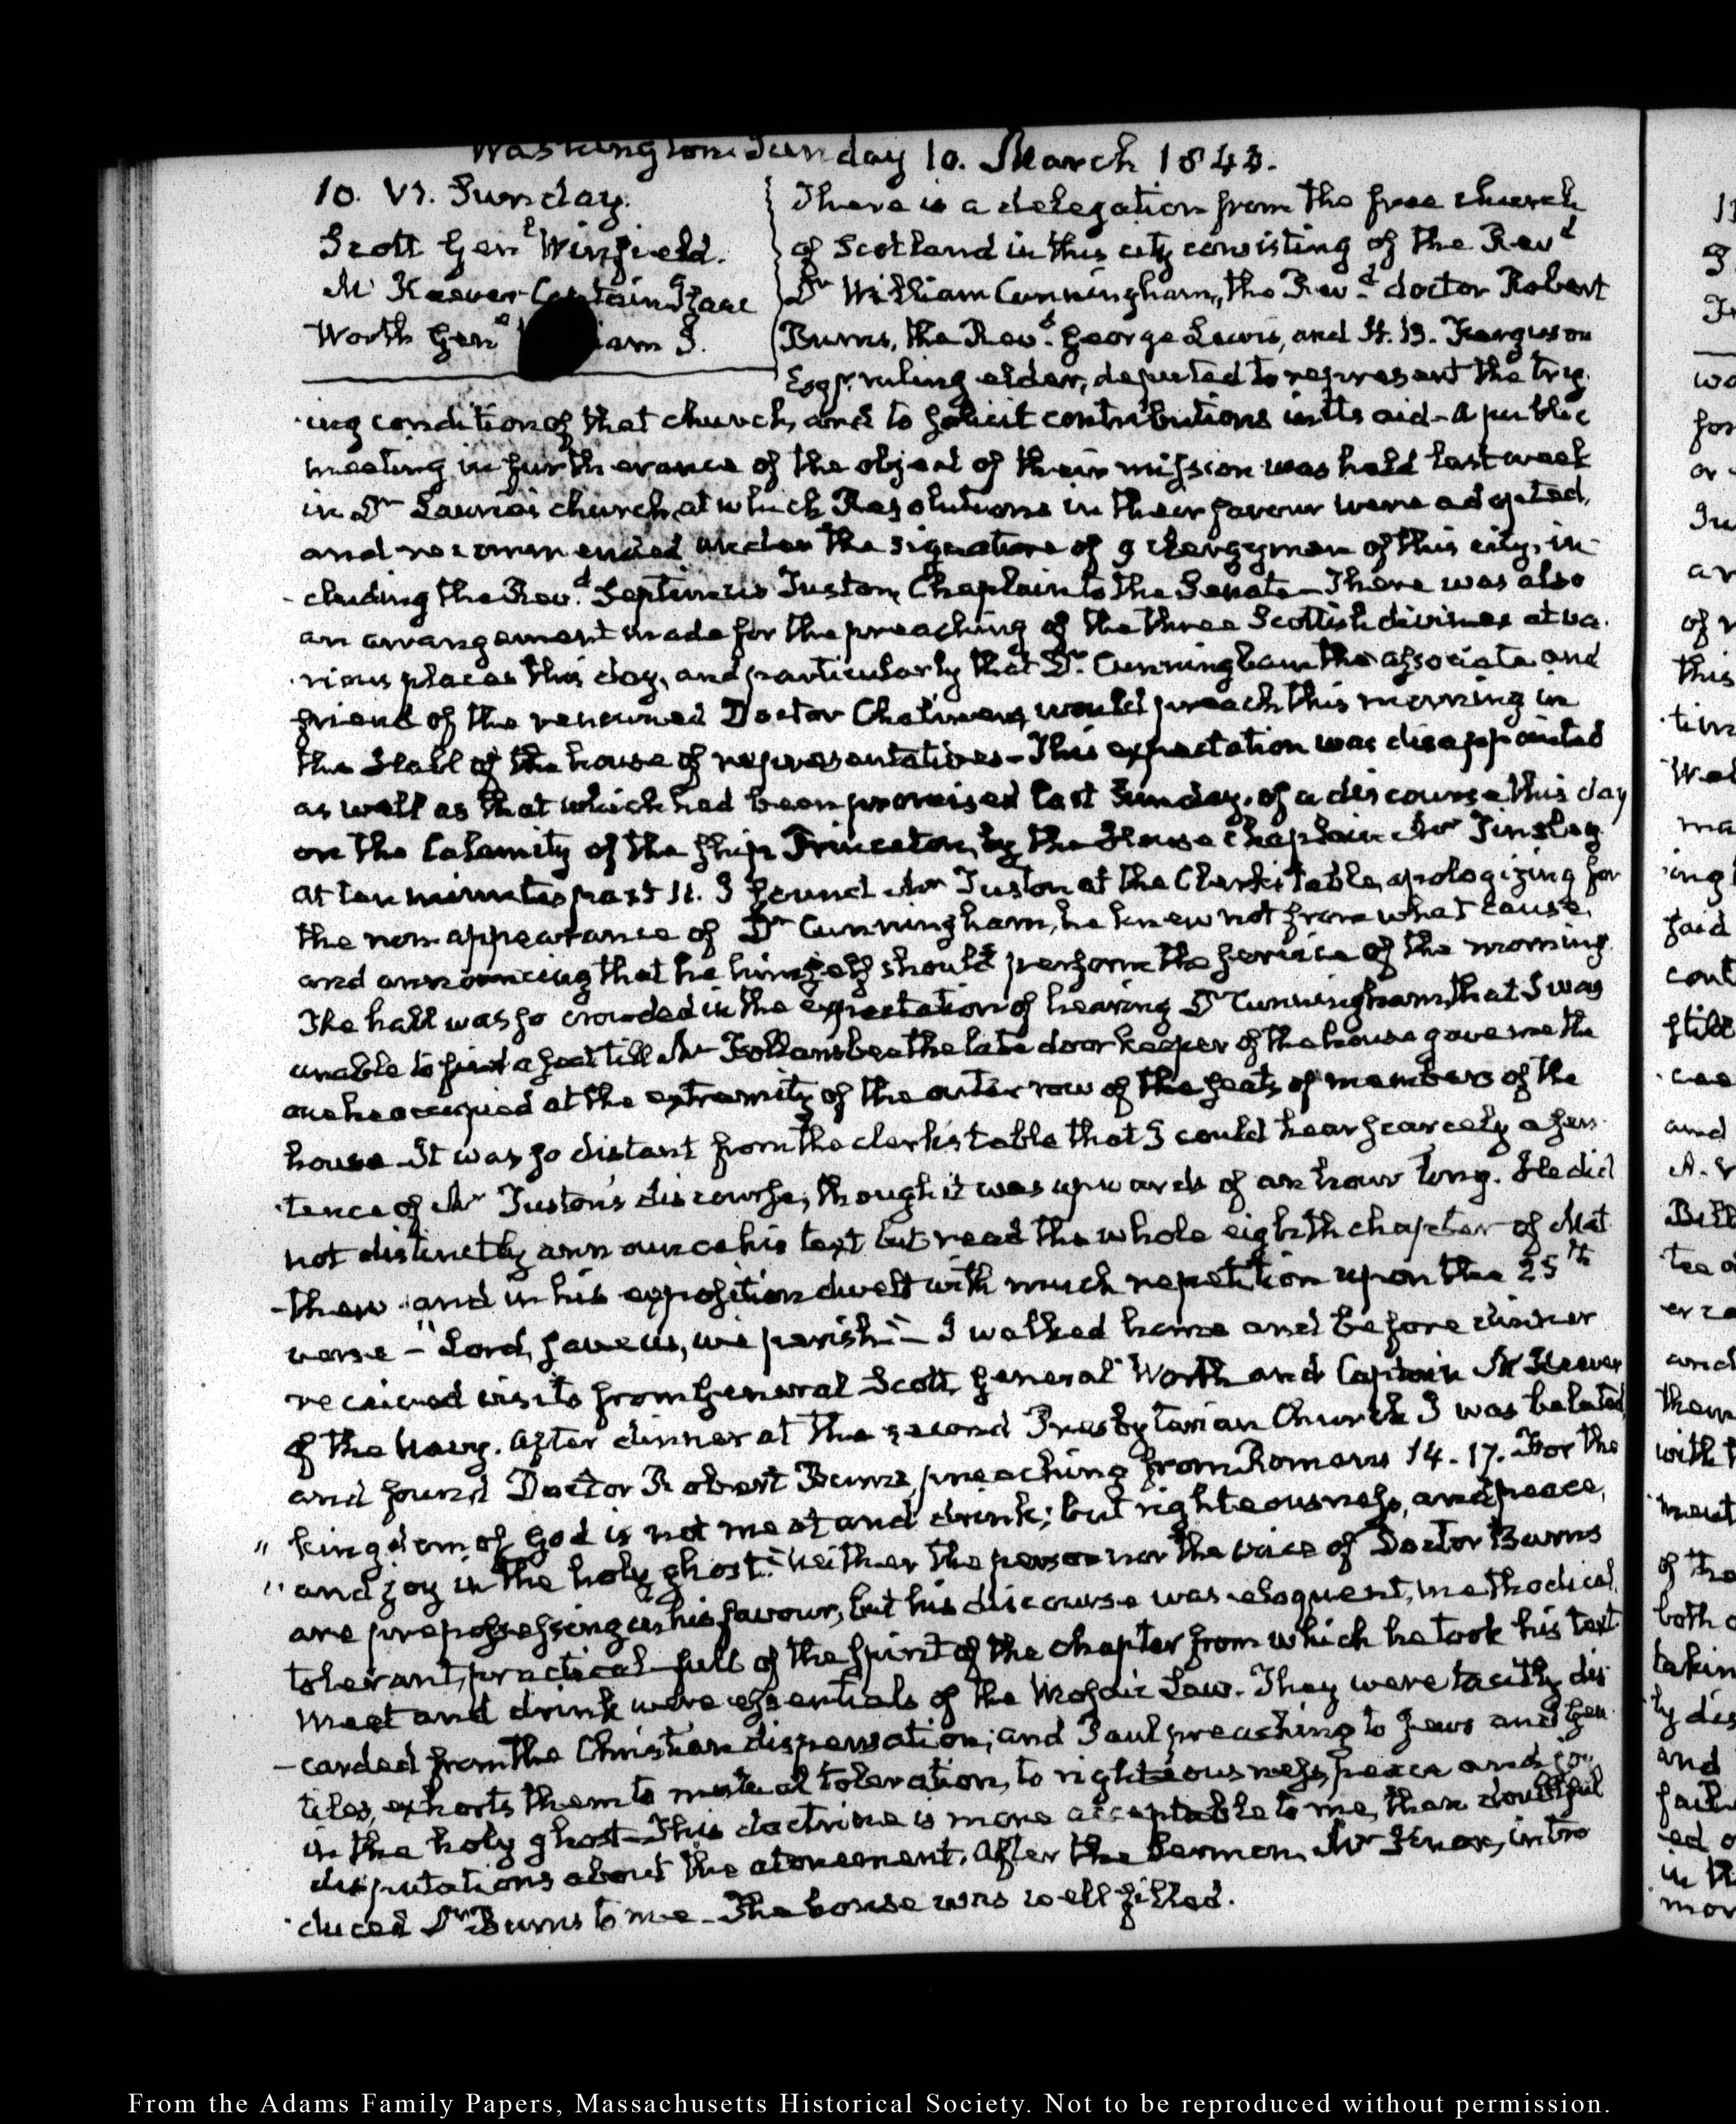 Washington Sunday 10. March 1843.
10. VI. Sunday.
Scott Genl Winfield.
Mc Keever Captain Isaac
Worth Genl iam J.
There is a delegation from the free church
of Scotland in this city consisting of the Revd
Dr William Cunningham, the Revd. doctor Robert
Burns, the Revd. George Lewis, and H. B. Ferguson
Esqr. ruling elder, deputed to represent the try-
ing condition of that church, and to solicit contributions in its aid - A public
meeting in furtherance of the object of their mission was held last week
in Dr Laurie's church, at which Resolutions in their favour were adopted,
and recommended under the signature of 9 clergymen of this city, in-
-cluding the Revd. Septimus Tuston, Chaplain to the Senate - There was also
an arrangement made for the preaching of the three Scottish divines at va-
-rious places this day, and particularly that Dr. Cunningham the associate and
friend of the renowned Doctor Chalmers, would preach this morning in
the Hall of the house of representatives - This expectation was disappointed
as well as that which had been promised last Sunday, of a discourse this day
on the Calamity of the ship Princeton, by the House Chaplain Mr Tinsley
at ten minutes past 11. I found Mr Tuston at the Clerk's table, apologizing for
the non appearance of Dr Cunningham, he knew not from what cause,
and announcing that he himself should perform the service of the morning
The hall was so crowded in the expectation of hearing Dr Cunningham, that I was
unable to find a seat till Mr Follansbee the late door keeper of the house gave me the
one he occupied at the extremity of the outer row of the seats of members of the
house - It was so distant from the clerk's table that I could hear scarcely a sen-
-tence of Mr Tuston's discourse, though it was upwards of an hour long. He did
not distinctly announce his text but read the whole eighth chapter of Mat-
-thew and in his exposition dwelt with much repetition upon the 25th
verse - "Lord, save us, we perish" - I walked home and before dinner
received visits from General Scott, General Worth and Captain Mc Keever
of the Navy. After dinner at the second Presbyterian Church I was belated,
and found Doctor Robert Burns, preaching from Romans 14. 17. For the
" kingdom of God is not meat and drink; but righteousness, and peace,
" and joy in the holy ghost." Neither the person nor the voice of Doctor Burns
are prepossessing in his favour, but his discourse was eloquent, methodical
tolerant, practical - full of the spirit of the chapter from which he took his text
Meat and drink were essentials of the Mosaic Law. They were tacitly dis-
-carded from the Christian dispensation; and Paul preaching to Jews and Gen-
tiles, exhorts them to mutual toleration, to righteousness, peace and joy
in the holy ghost - This doctrine is more acceptable to me, than doubtful
disputations about the atonement. After the Sermon, Mr Knox, intro-
-duced Dr Burns to me - The house was well filled.
From the Adams Family Papers, Massachusetts Historical Society. Not to be reproduced without permission.